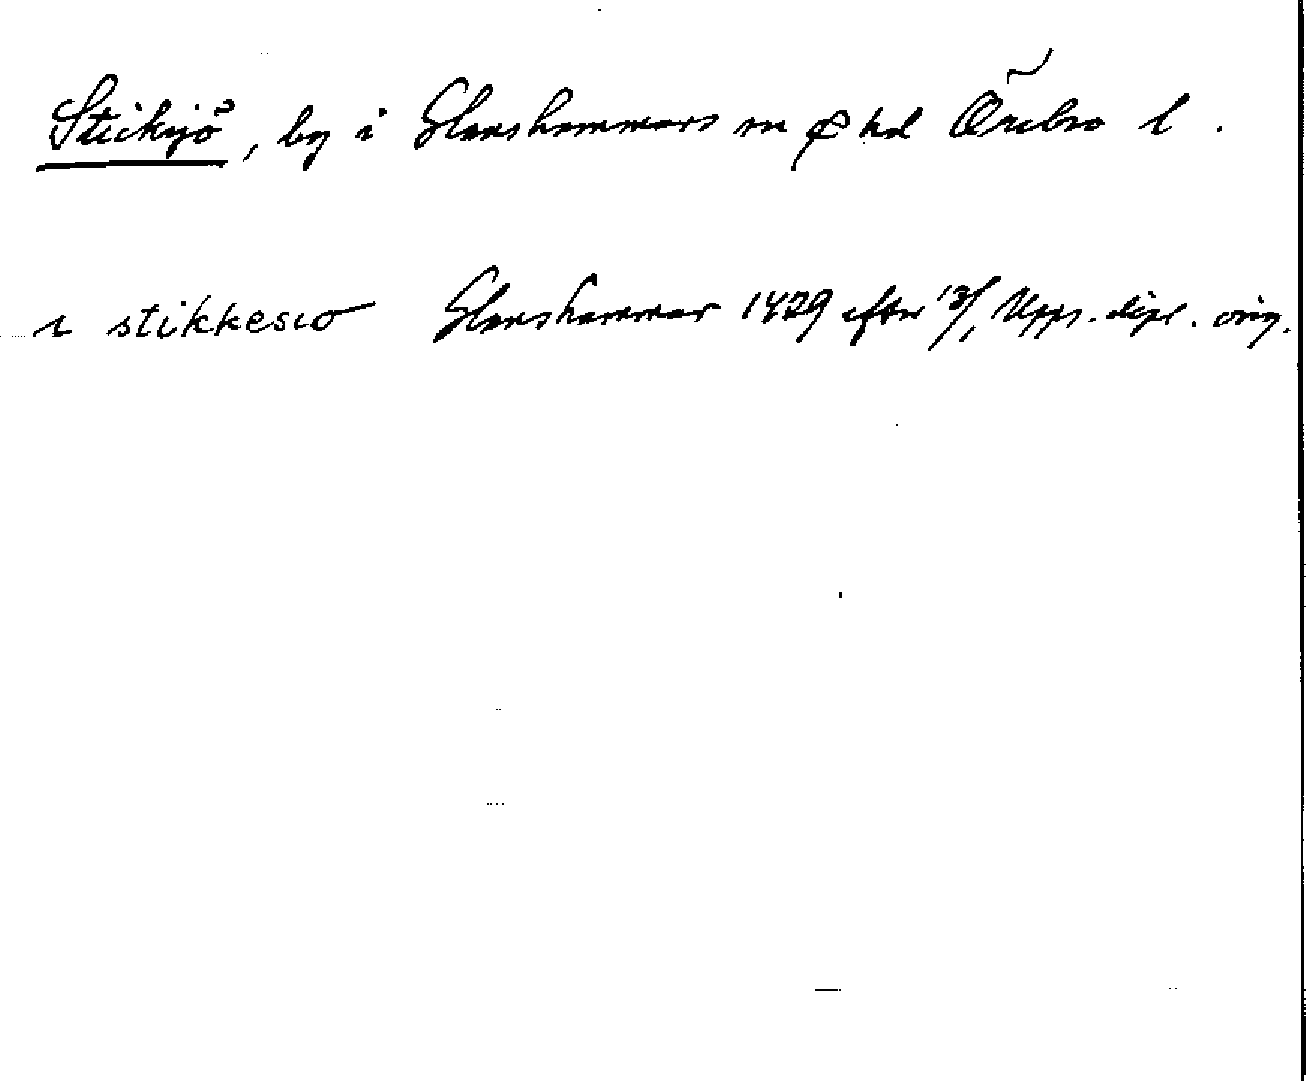 Sticksjö, by i Glanshammars sn o hd Örebro l.
i stikkesio Glanshammar 1429 efter 13/1 Upps. dipl. orig.